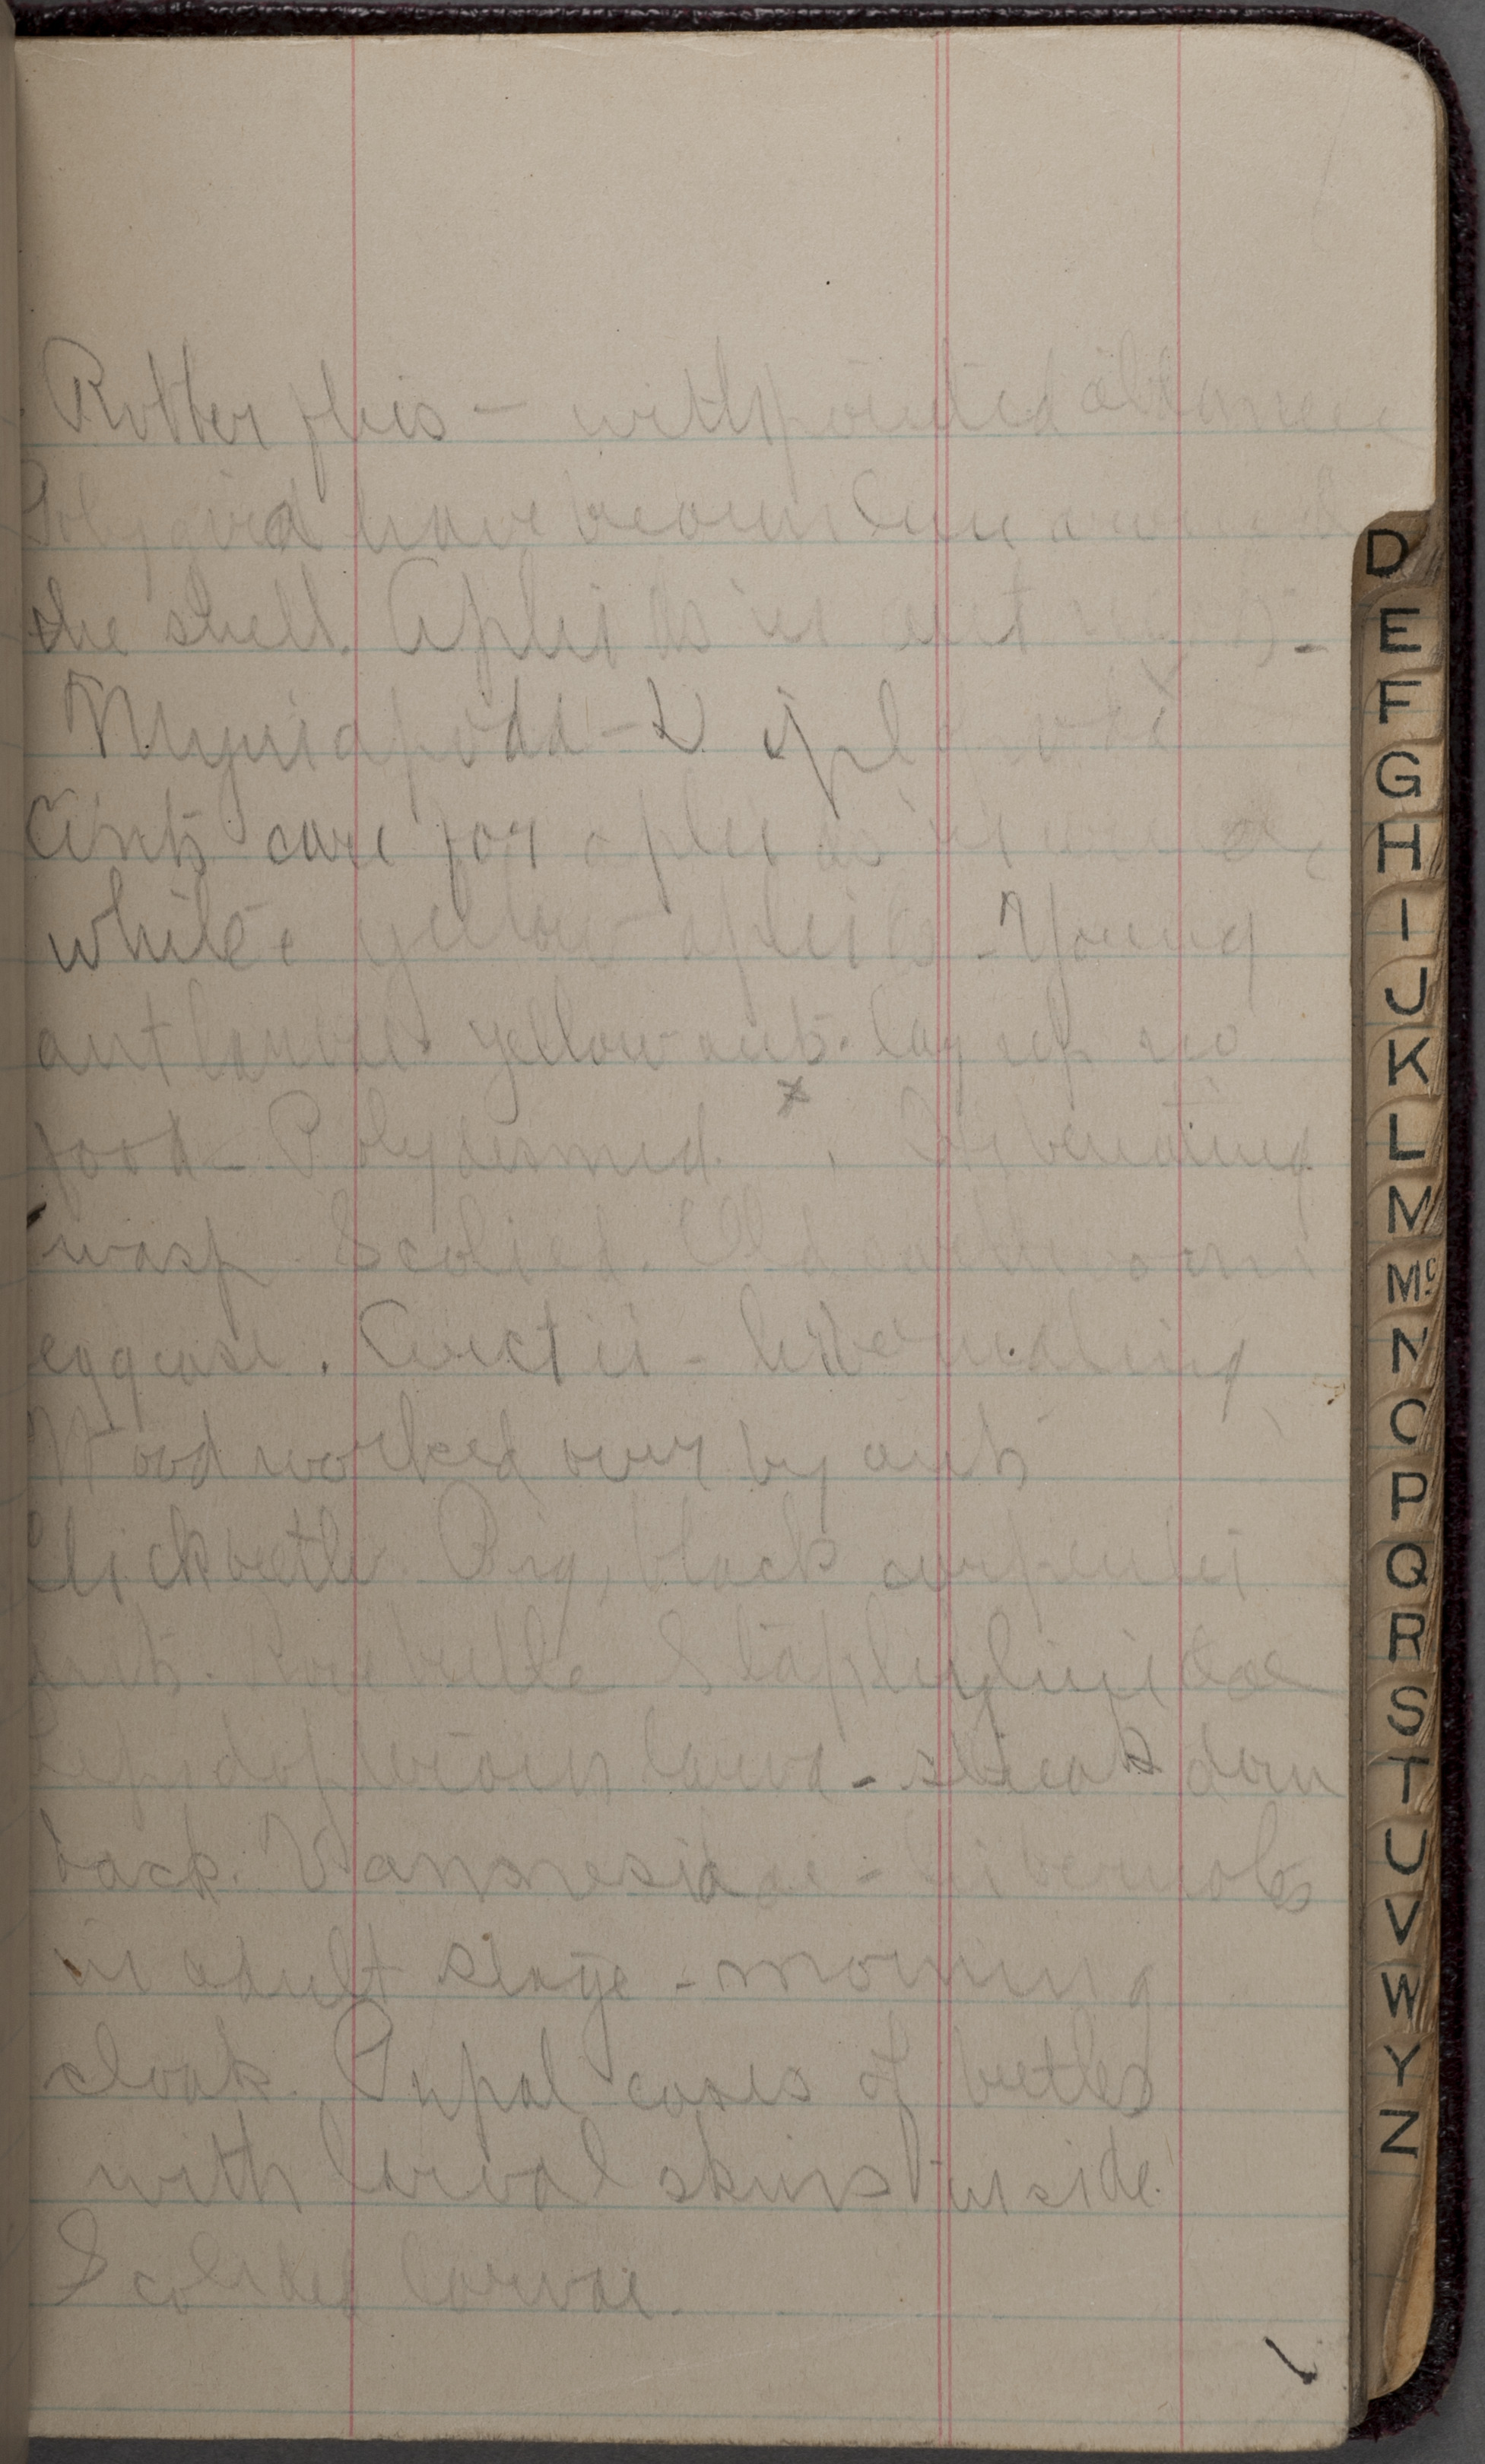 Robber flies – with pointed abdomen
Polygyra have brown line around
the shell. Aphids in ant
Myriapoda – Diplopoda
Ants care for aphids
white & yellow aphids – Young
ant larvae yellow ants. lay up no
food – x
wasp Scolied. Old earthworm
egg case. Arctii – hibernating
Wood worked over by ants
Click beetle. Big, black carpenter
ants. Rove beetle Staphylinidae
Lepidopterous larva – streak down
back. Vannessidae – hibernates
in adult stage – mourning
cloak. Pupal cases of beetles
with larval skins inside.
Scolided larvae.
D
E
F
G
H
I
J
K
L
M
Mc
N
O
P
Q
R
S
T
U
V
W
Y
Z